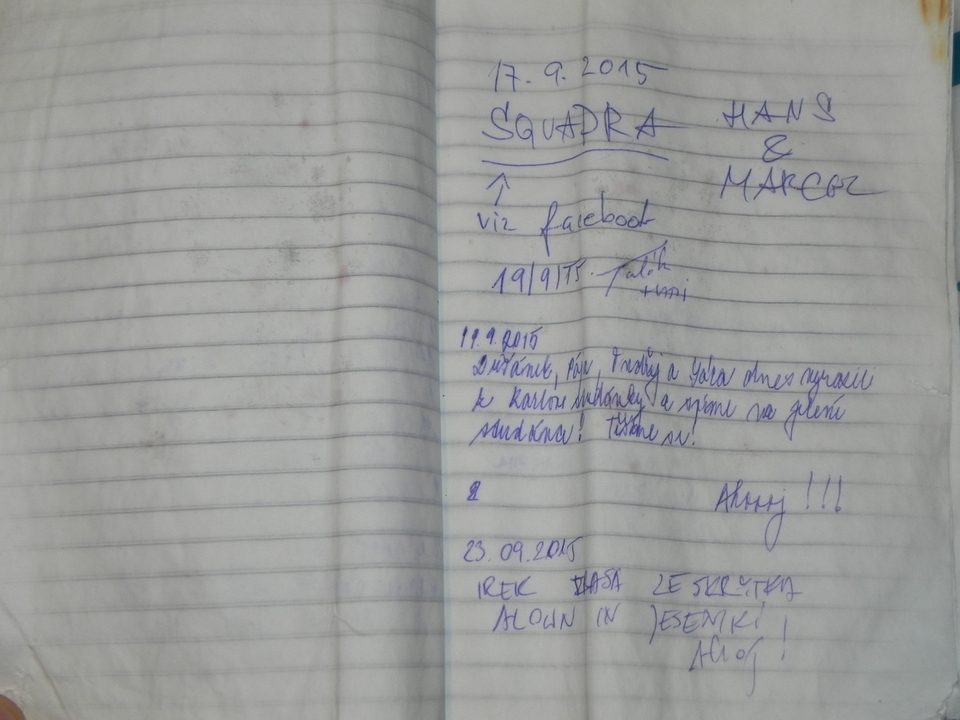 17. 9. 2015
SQUADRA HANS
&
MARCEL
↑
viz facebook
19/9/15
19.9.2015
Dušánek, Pája, Ondřej a Yára dnes vyrazili
k Karlově studánky a míříme na
studánku! Těšíme se!
Ahoooj !!!
23.09.2015
IREK ZE SKRZYTKA
ALOWN IN JESENIKI!
AHOJ!